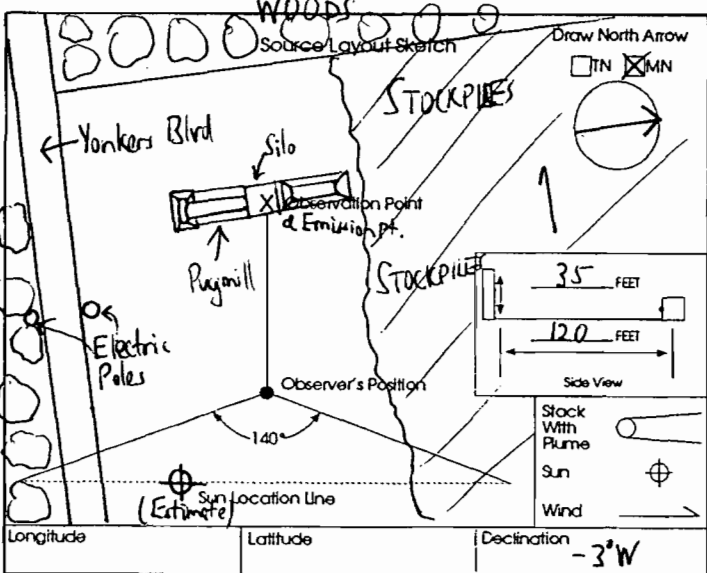 WOODS
Source Layout Sketch
Draw North Arrow
TN MN
STOCKPILES
Yonkers Blvd
Silo
X Observation Point
& Emission pt.
Pugmill
STOCKPILES
35 FEET
120 FEET
Side View
Electric
Poles
Observer's Position
140°
Sun Location Line
(Estimate)
Stack
With
Plume
Sun
Wind
Longitude
Latitude
Declination
-3°W